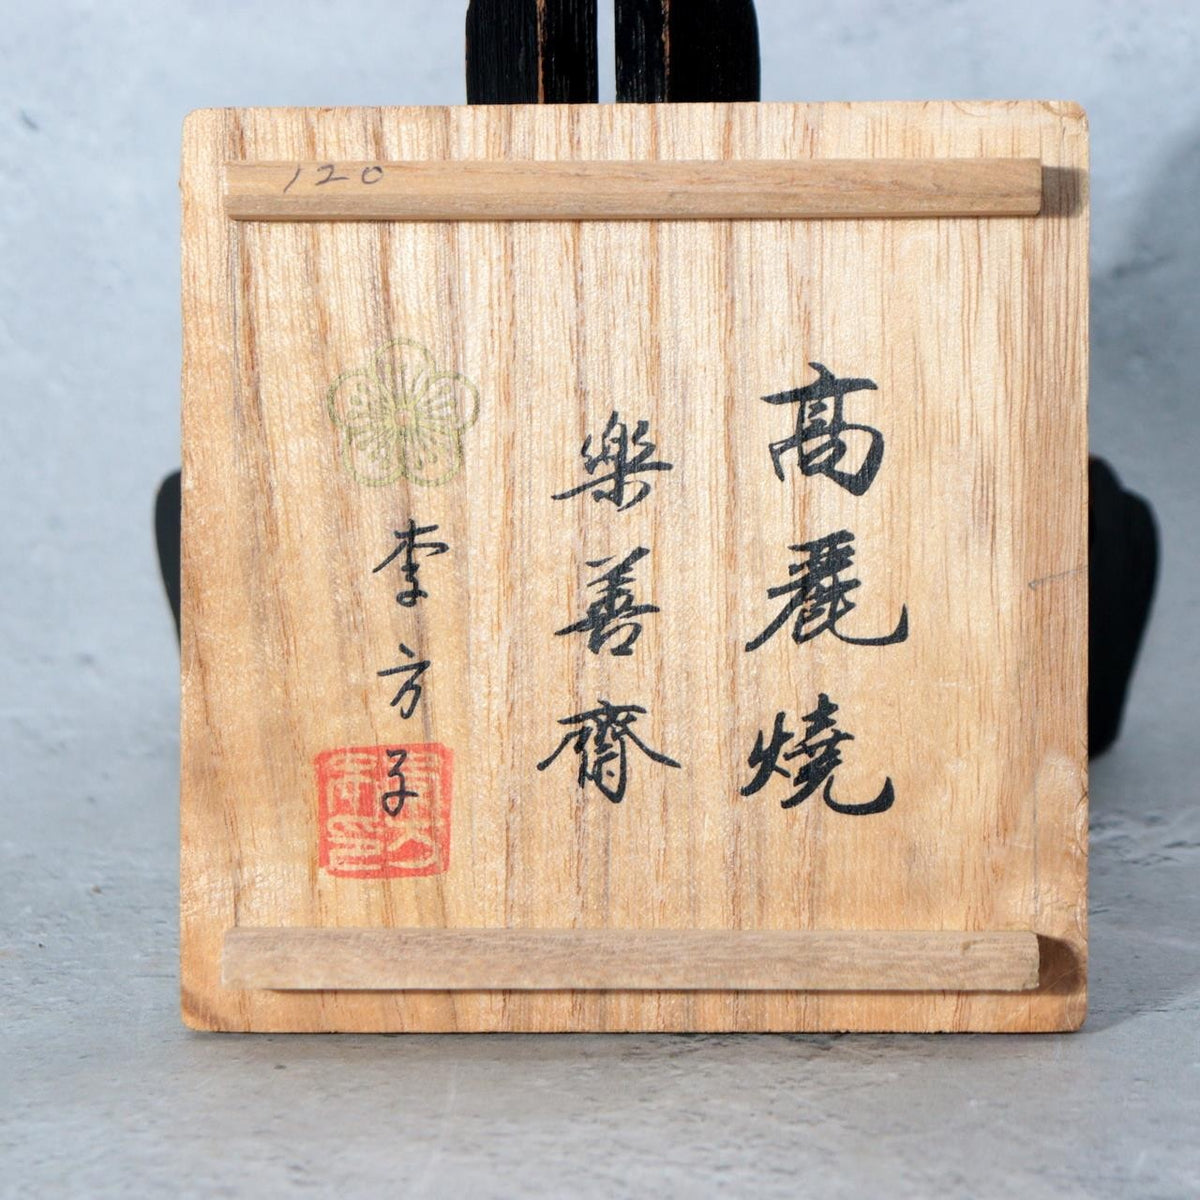 120
高麗燒
樂善齋
李方子